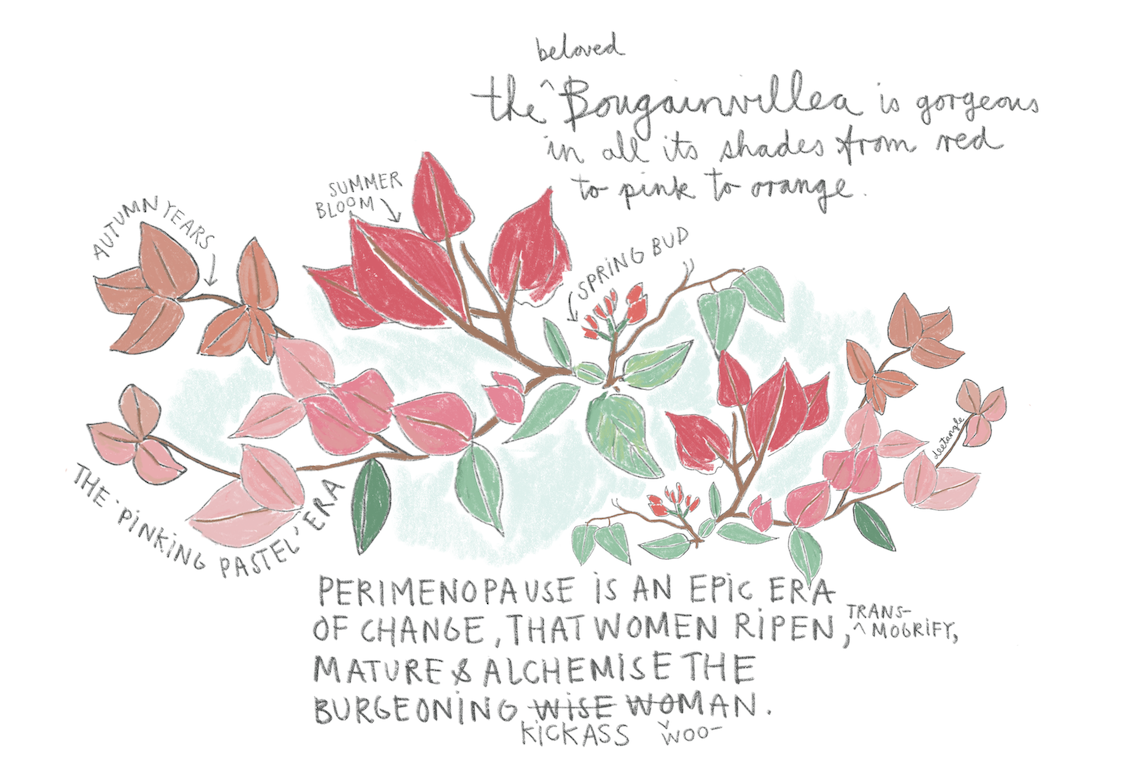 beloved
the ^ Bougainvillea is gorgeous
in all its shades from red
to pink to orange.
SUMMER
BLOOM
AUTUMN YEARS
SPRING BUD
deetangle
THE 'PINKING PASTEL' ERA
PERIMENOPAUSE IS AN EPIC ERA
OF CHANGE, THAT WOMEN RIPEN, ^ TRANS-
MOGRIFY,
MATURE & ALCHEMISE THE
BURGEONING WISE WOMAN.
KICKASS WOO-